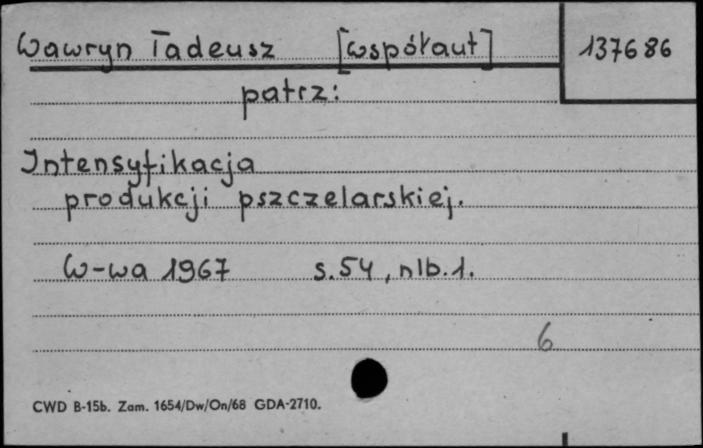 Wawryn Tadeusz [współaut] 137686
patrz:
Intensyfikacja
produkcji pszczelarskiej.
W-wa 1967 s.54, nlb.1.
6
CWD B-15b. Zam. 1654/Dw/On/68 GDA-2710.